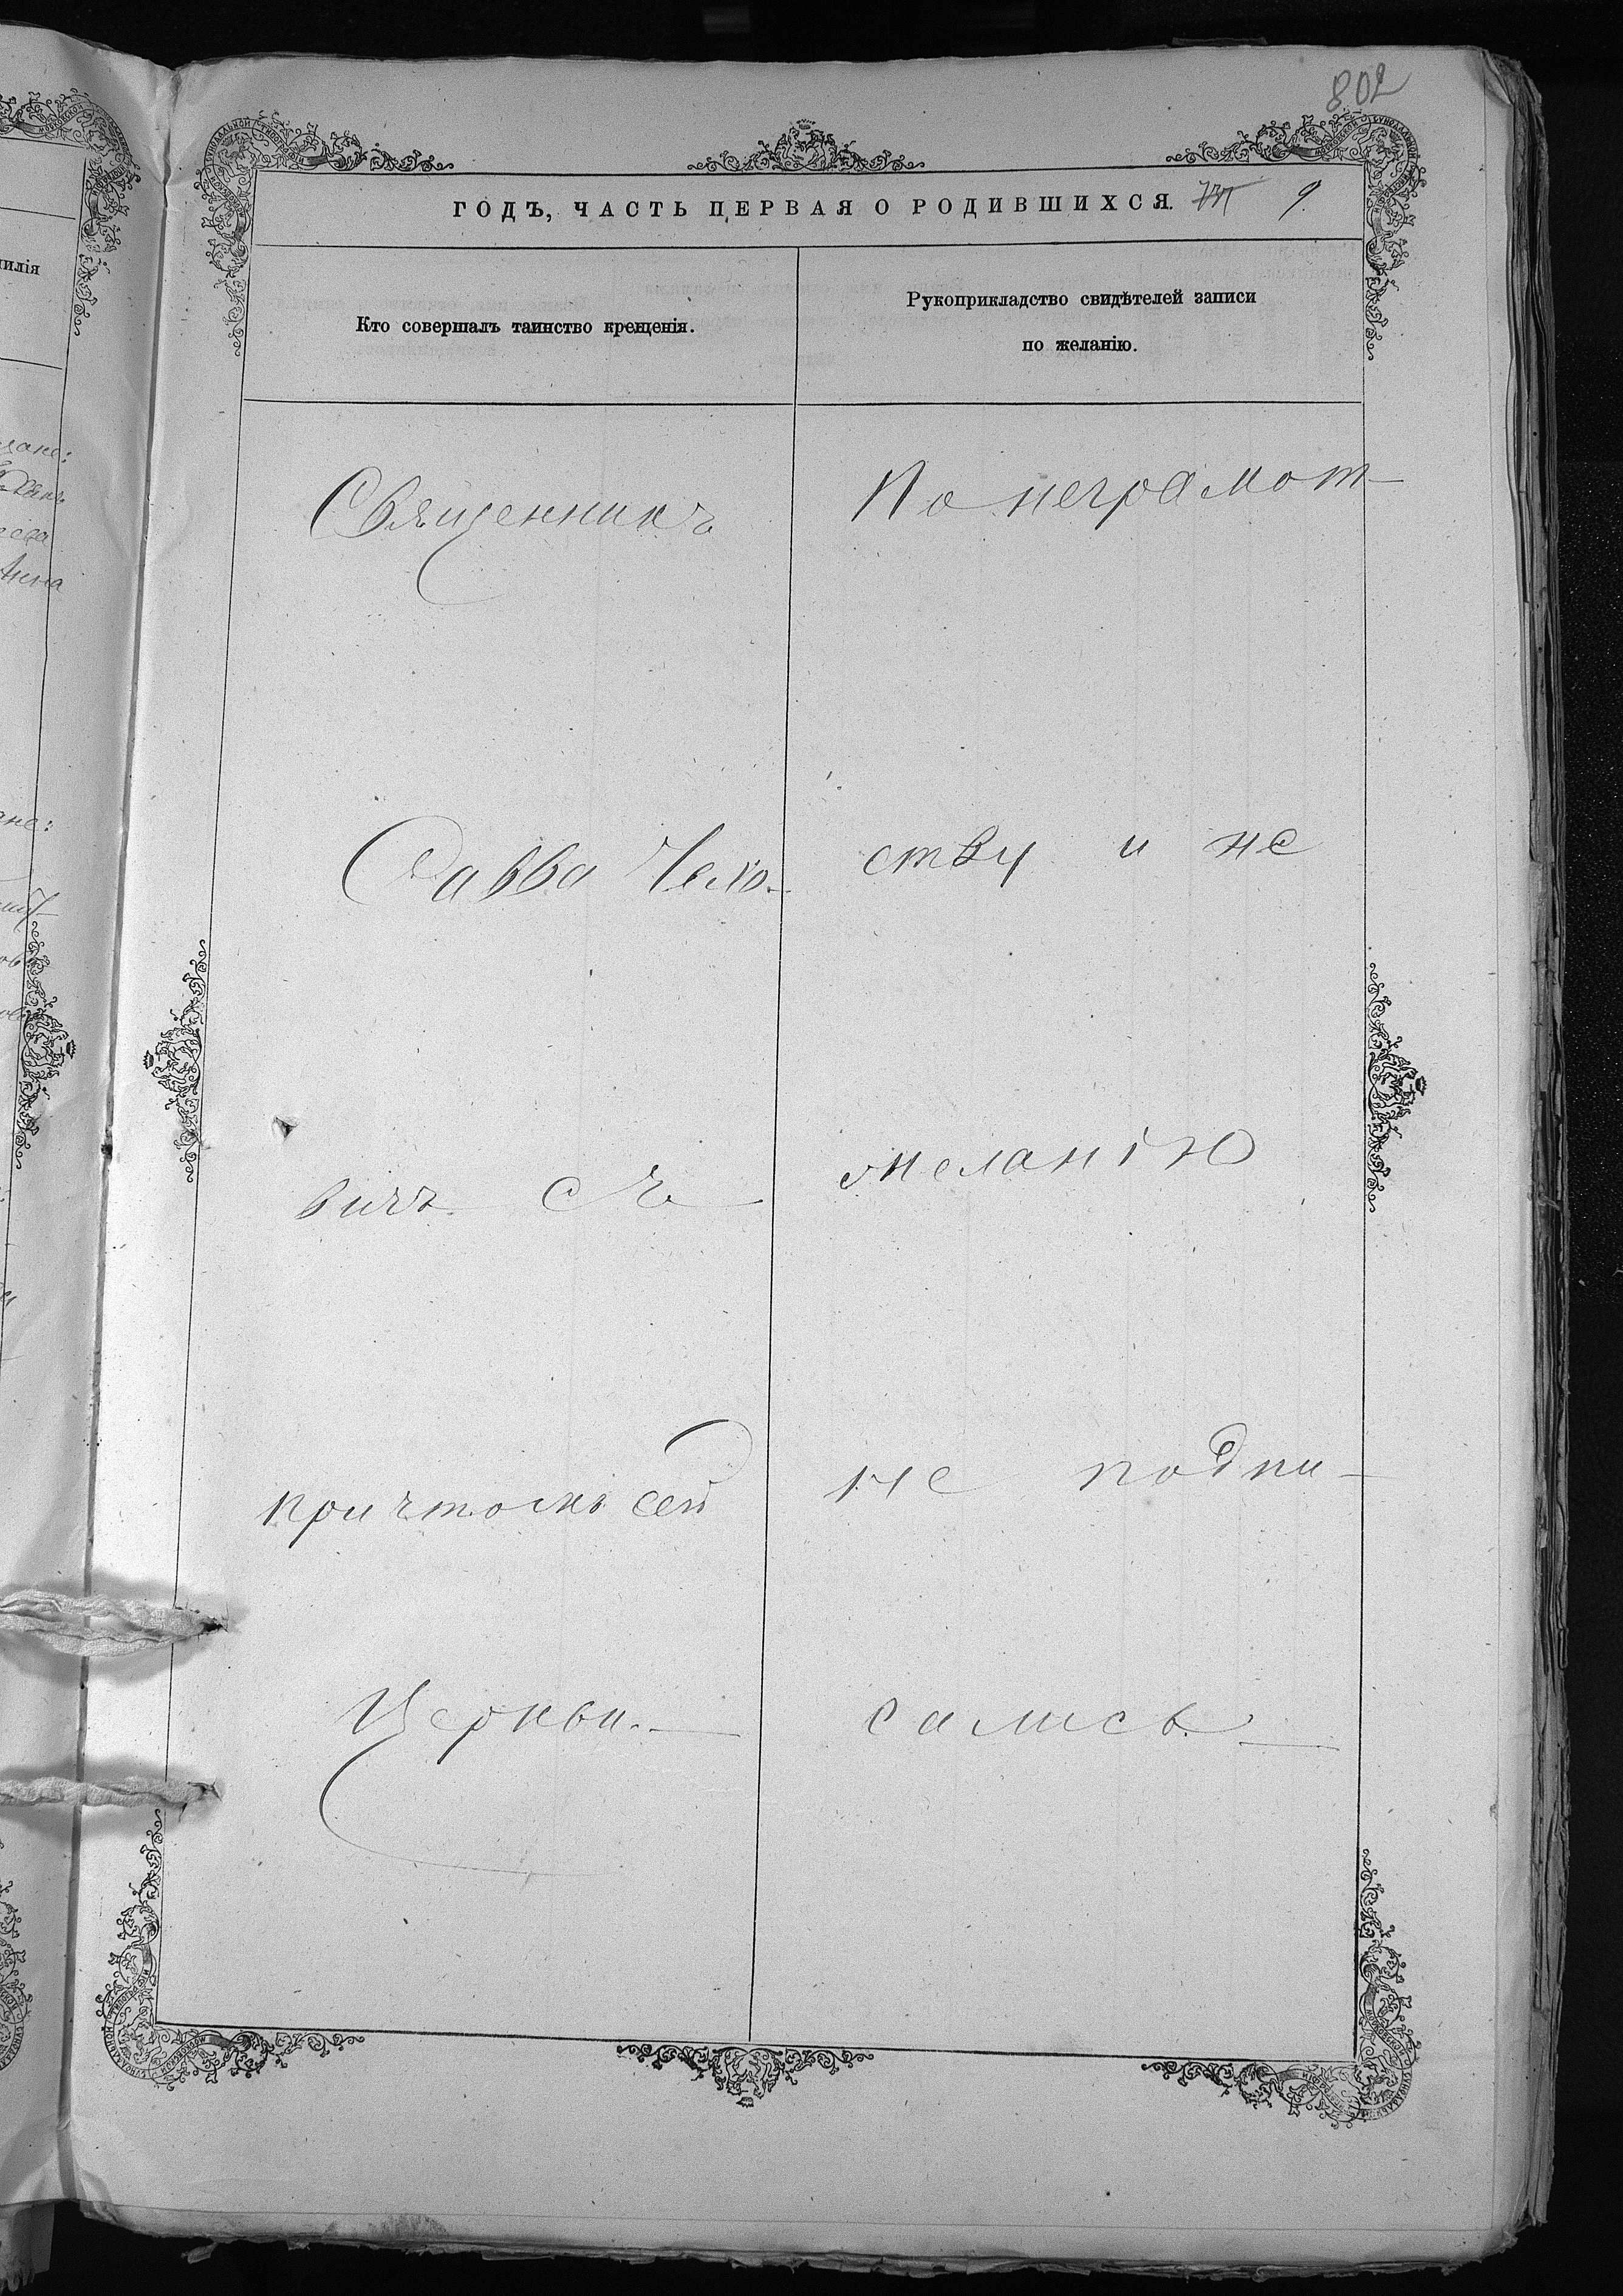 802
ГОДЪ, ЧАСТЬ ПЕРВАЯ О РОДИВШИХСЯ. 9.
Кто совершалъ таинство крещенія.
Рукоприкладство свидѣтелей записи
по желанію.
Священникъ
Савва Чехо-
вичъ съ
причтомъ сей
Церкви.
По неграмот-
ству и не
желанію
не подпи-
сались.
милія
Анна